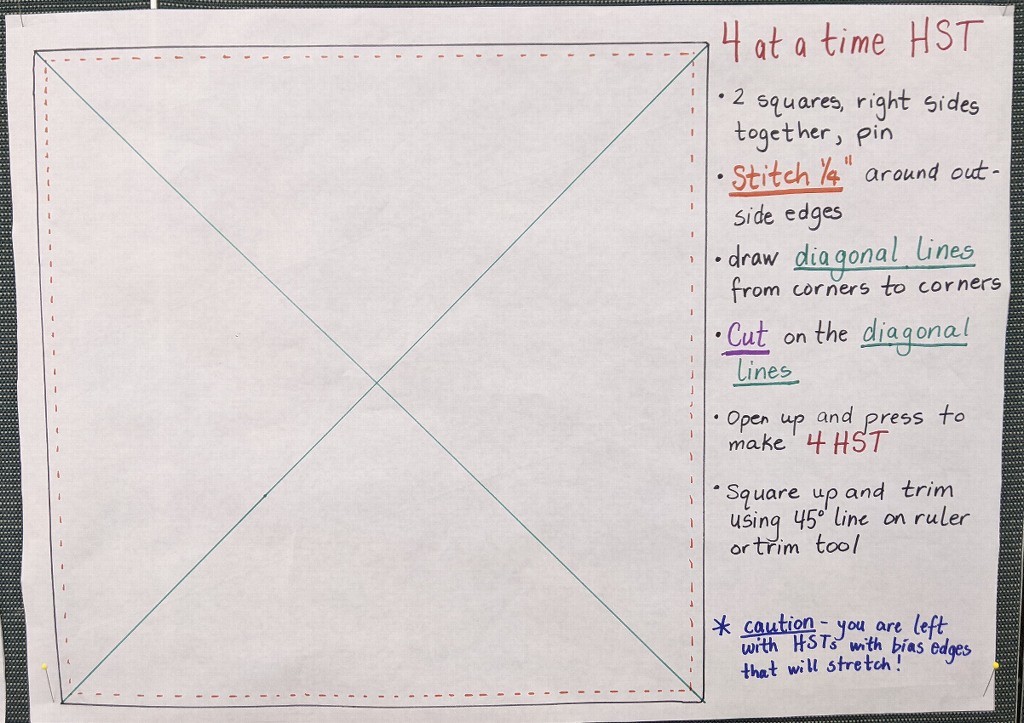 4 at a time HST
• 2 squares, right sides
together, pin
• Stitch 1/4" around out-
side edges
• draw diagonal lines
from corners to corners
• Cut on the diagonal
lines
• Open up and press to
make 4 HST
• Square up and trim
using 45° line on ruler
or trim tool
* caution - you are left
with HSTs with bias edges
that will stretch!